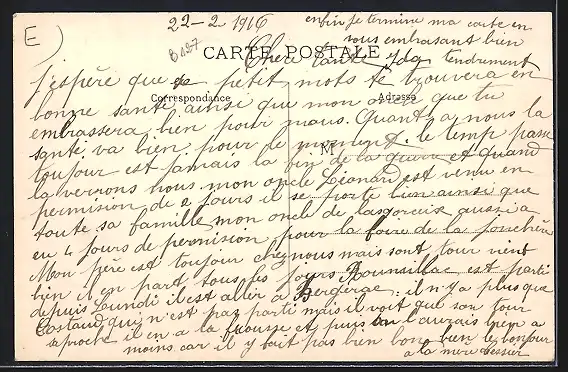 E)
22-2 1916
B 187
CARTE POSTALE
Correspondance
Adresse
M
Chère tante Ida
j'espère que ce petit mots te trouvera en
bonne santé ainsi que mon oncle que tu
embrassera bien pour nous. Quant a nous la
santé va bien pour le moment. le temp passe
toujour est jamais la fin de la guerre et quand
la verrons nous mon oncle Léonard est venu en
permision de 2 jours il se porte bien ainsi que
toute sa famille mon oncle de aussi a
eu 4 jours de permision pour la foire de la
Mon père est toujour chez nous mais sont tour vient
bien il en part tous les jours Rounsillac est parti
depuis Lundi il est aller à Bergerac. il n'y a plus que
Castaud qui n'est pas parti mais il voit que son tour
aproche il en a la frousse et puis on l'aurait bien a
moins car il y fait pas bien bon bien le bonjour
a la mère Tessier
enfin je termine ma carte en
vous embrasant bien
tendrement